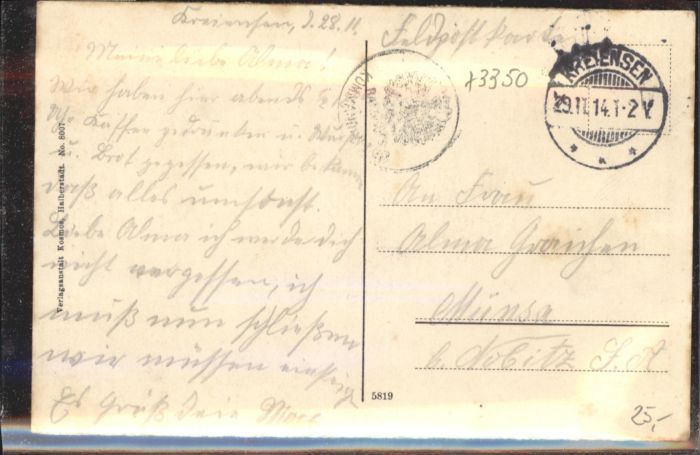 Kreiensen, d. 28. 11.
Meine liebe Alma!
Wir haben hier abends
Uhr Kaffee getrunken u. Wurst
u. Brot gegessen, wir bekamen
daß alles umsonst.
Liebe Alma ich werde dich
nicht vergessen, ich
muß nun schließen
wir müssen
Es grüß dein
Verlagsanstalt Kosmos, Halberstadt. No. 8007
Feldpostkarte
73350
KREIENSEN
29.11.14.1-2V.
An Frau
Alma Graichen
Münsa
b. Nobitz S. A
5819
25,-